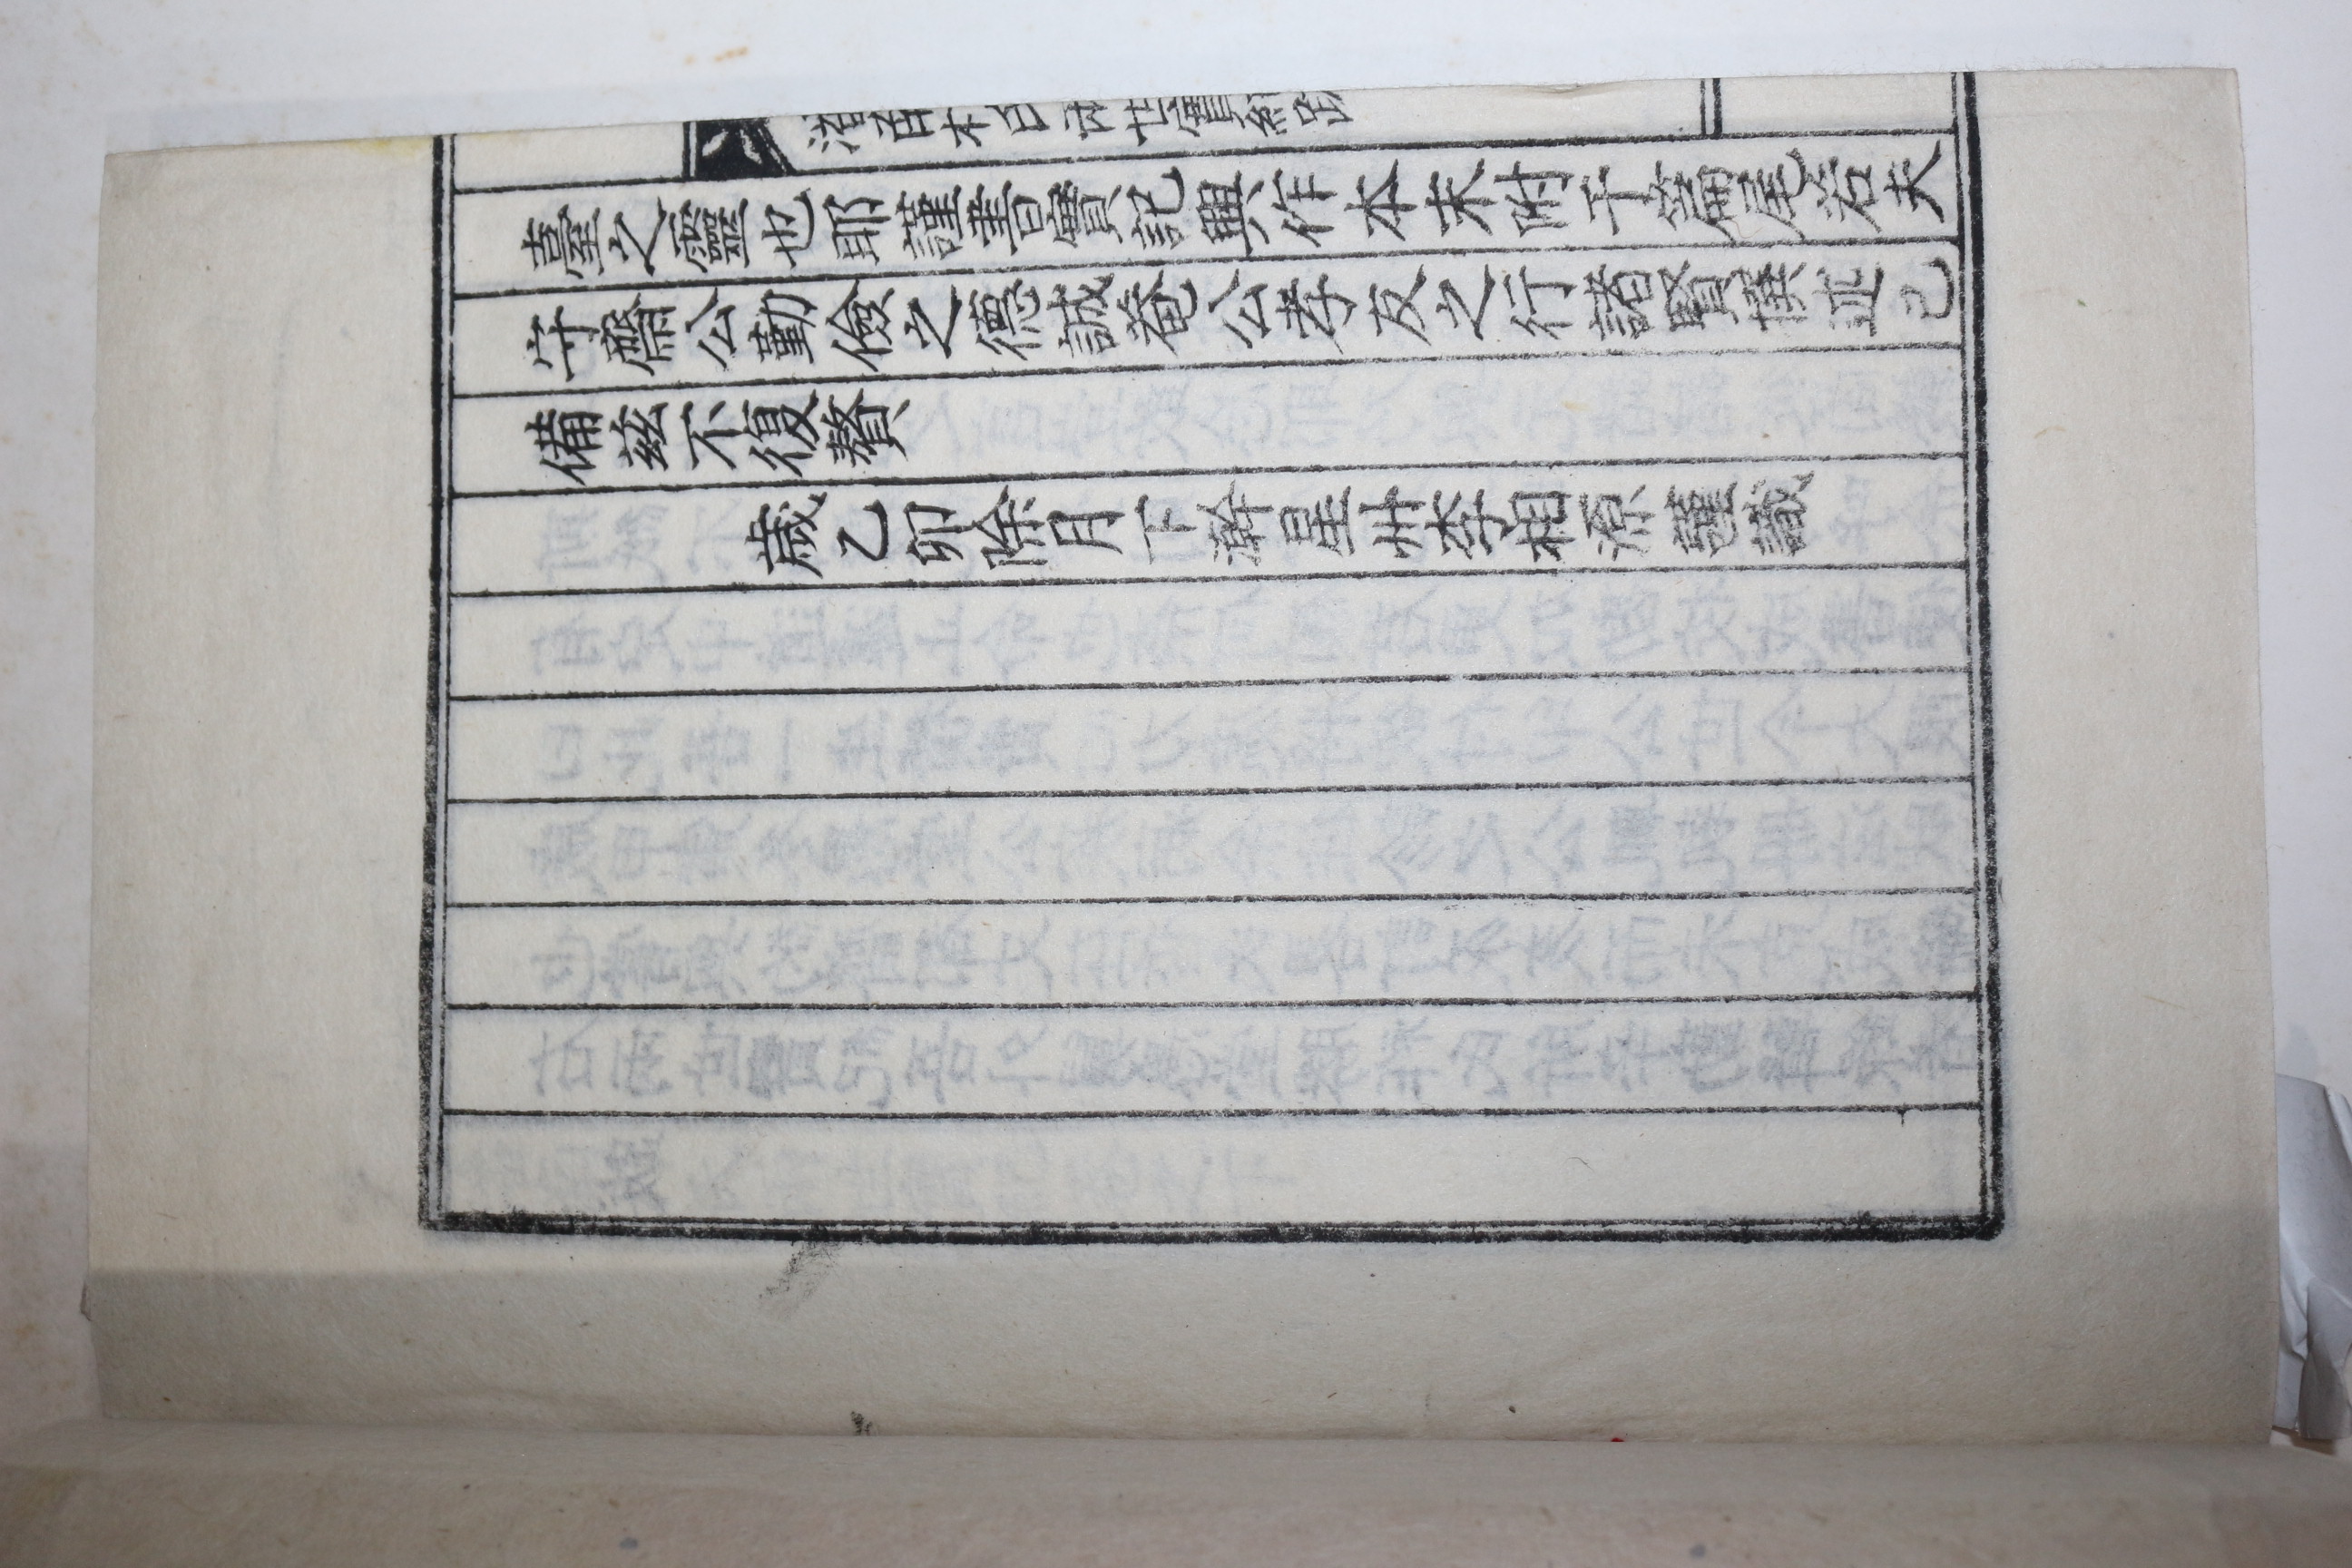 臺之靈也耶謹書實記興作本末附于篇尾若夫
守齋公勤儉之德誠菴公孝友之行諸賢撰述已
備玆不復贅
歲乙卯除月下澣星州李相源謹識
世實紀跋